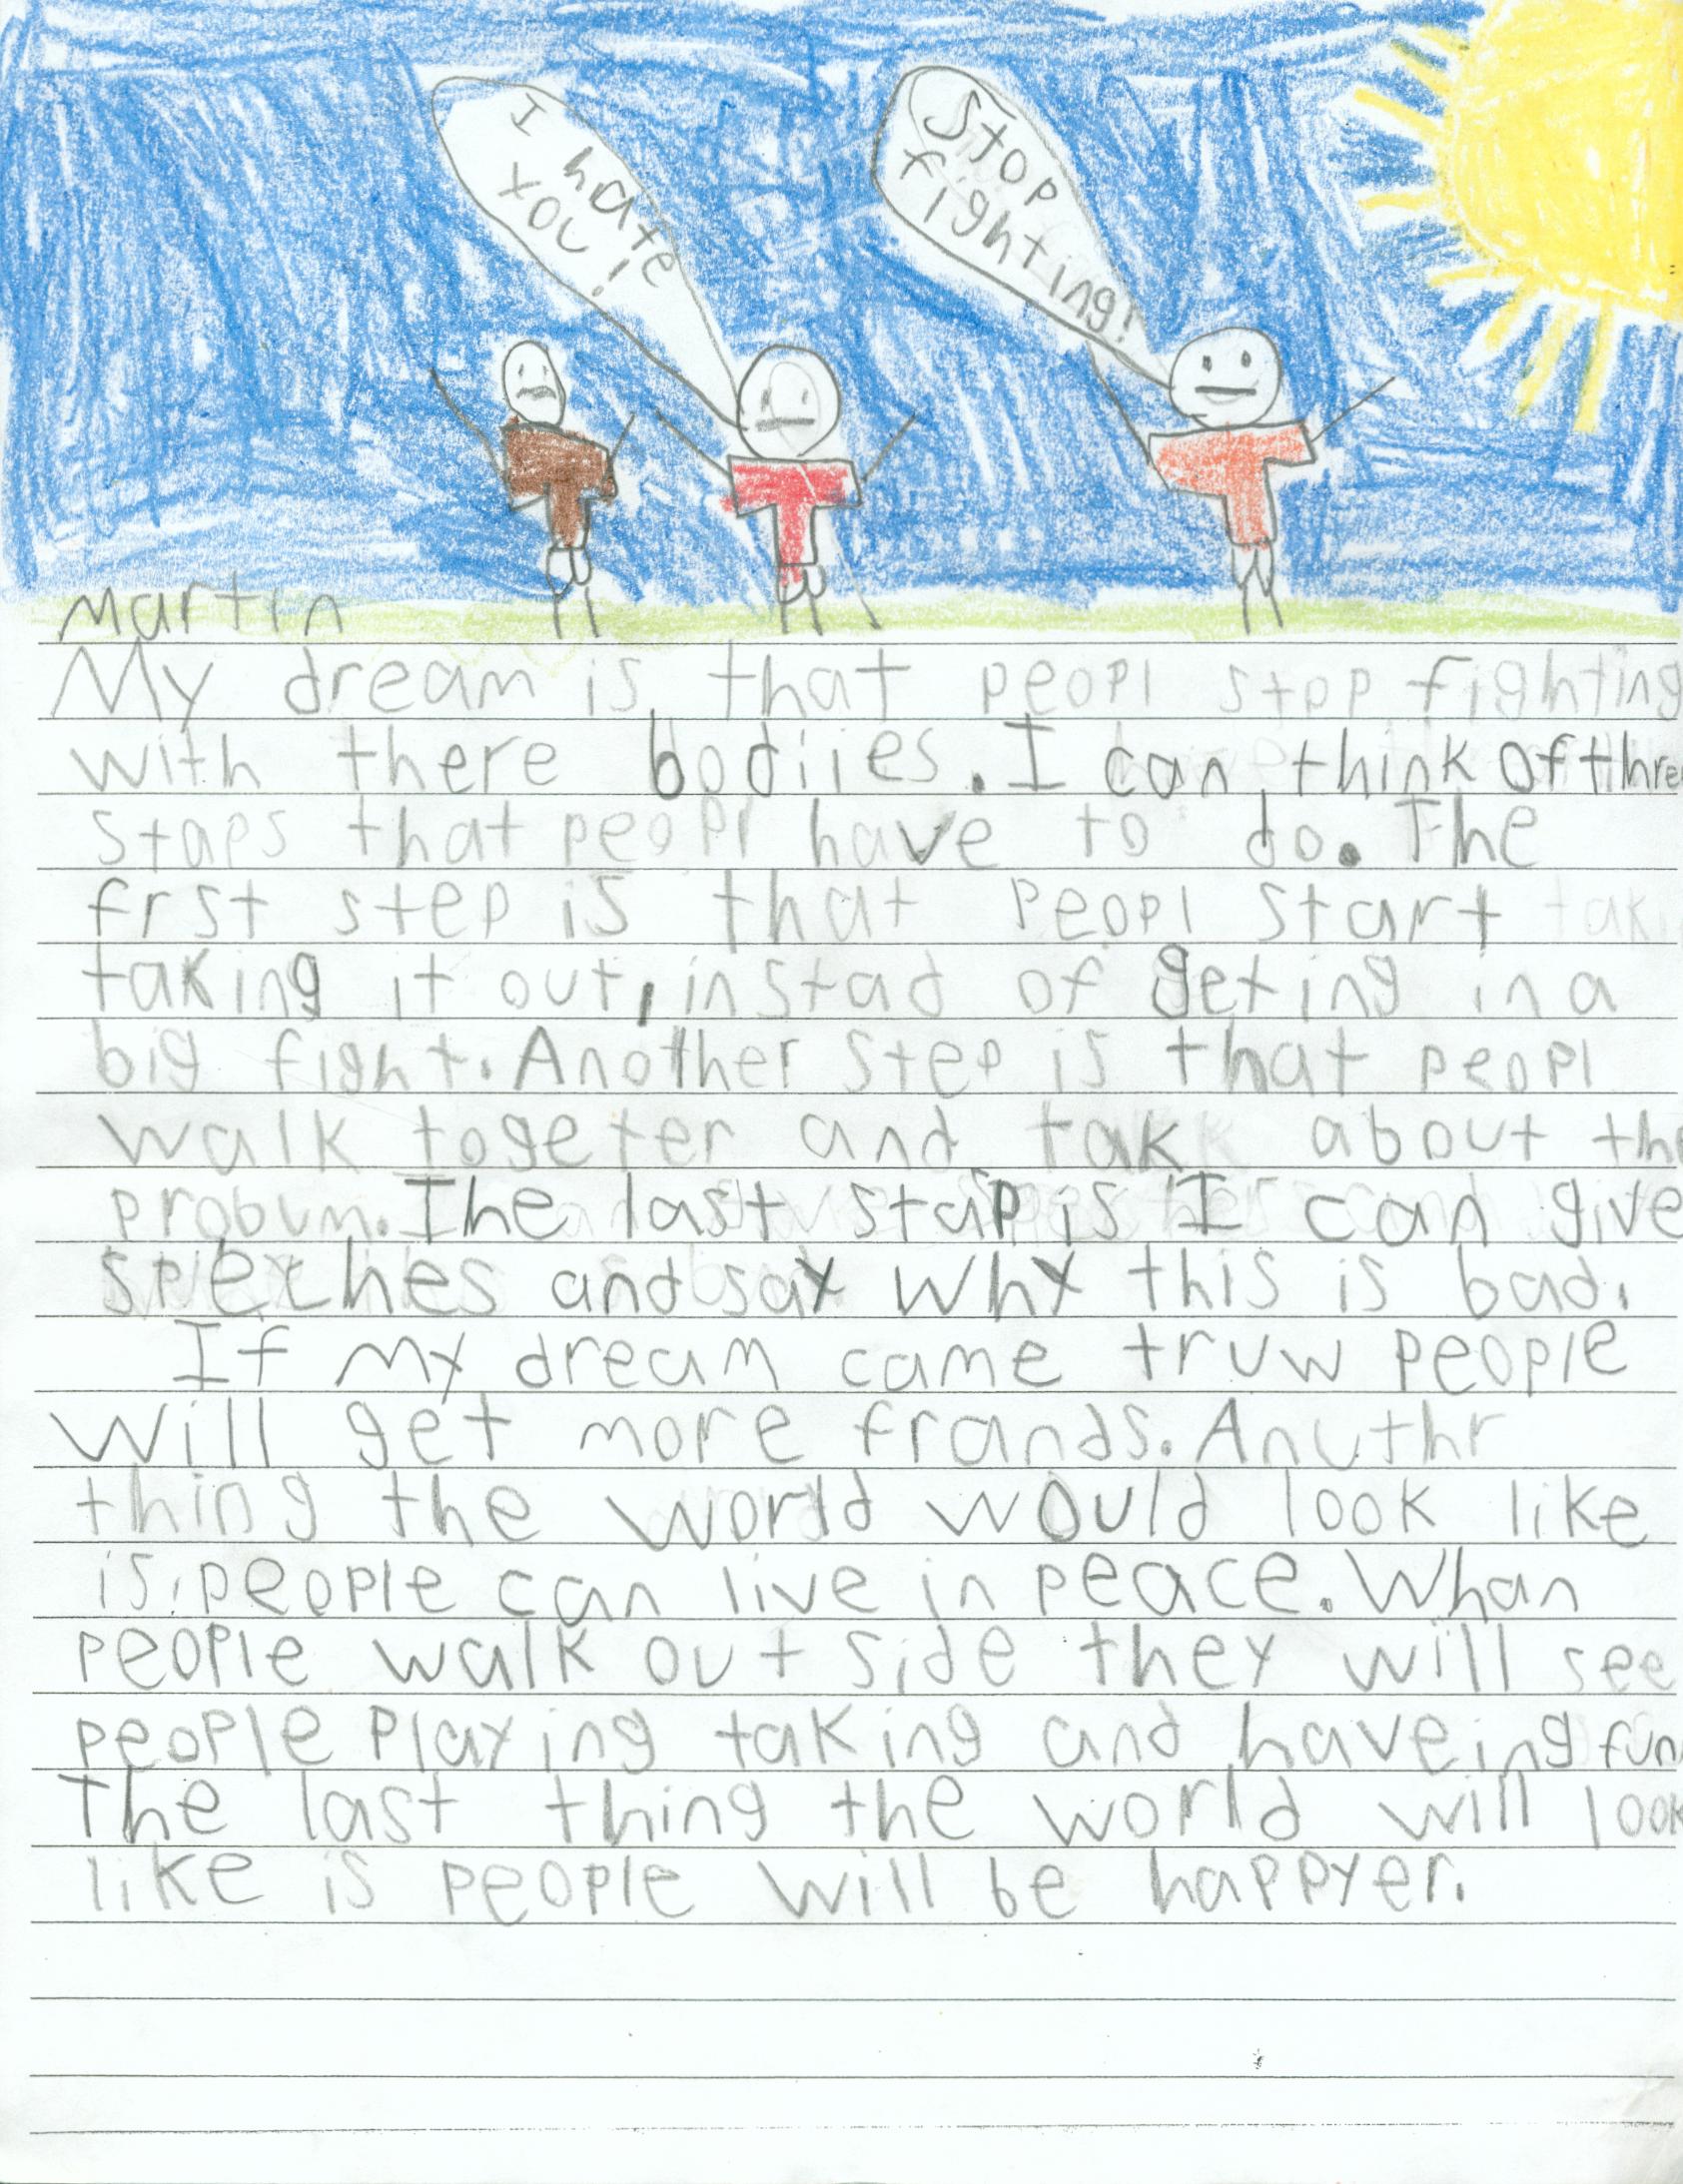 I
hate
you!
Stop
fighting!
Martin
My dream is that peopl stop fighting
with there bodiies. I can think of thre
staps that peopl have to do. The
frst step is that peopl start tak
taking it out, instad of geting in a
big fight. Another step is that peopl
walk togeter and tak about the
probum. The last stap is I can give
speches and say why this is bad.
If my dream came truw people
will get more frands. Anuthr
thing the world would look like
is, people can live in peace. Whan
people walk out side they will see
people playing taking and haveing fun.
The last thing the world will look
like is people will be happyer.